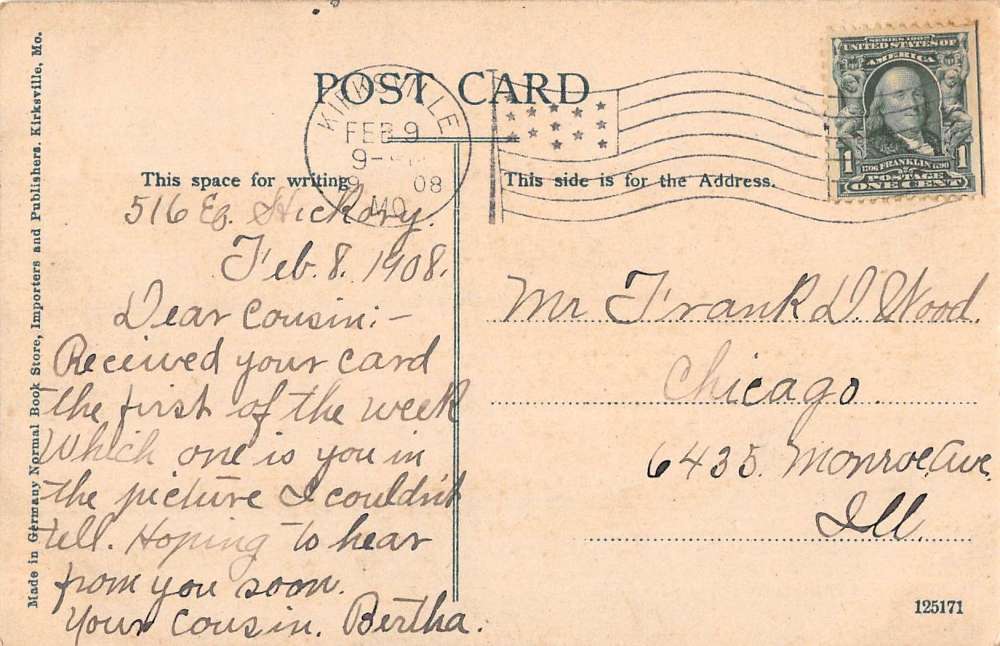 POST CARD
KIRKSVILLE
FEB 9
9-
08
MO.
SERIES 1902
UNITED STATES OF
AMERICA
1706 FRANKLIN 1790
1 POSTAGE 1
ONE CENT
This space for writing
This side is for the Address.
516 E. Hickory.
Feb. 8. 1908.
Dear Cousin:-
Received your card
the first of the week
Which one is you in
the picture I couldn't
tell. Hoping to hear
from you soon.
Your Cousin. Bertha.
Mr Frank D. Wood.
Chicago.
6435. Monroe. Ave.
Ill.
125171
Made in Germany Normal Book Store, Importers and Publishers. Kirksville, Mo.